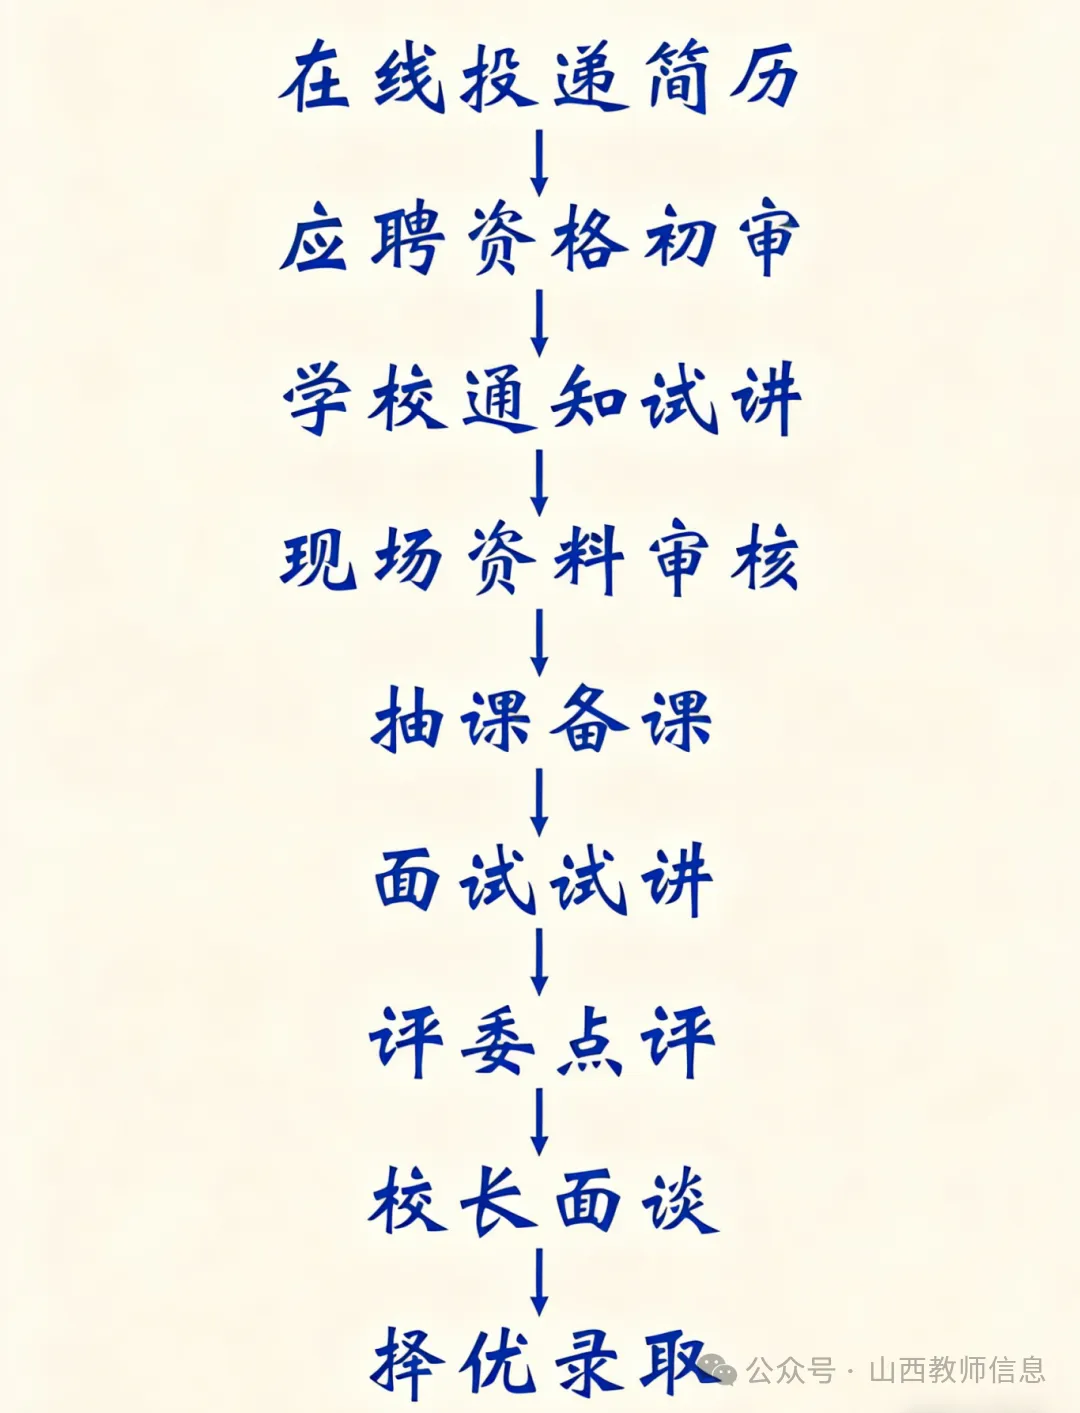 在线投递简历
应聘资格初审
学校通知试讲
现场资料审核
抽课备课
面试试讲
评委点评
校长面谈
择优录取
公众号·山西教师信息